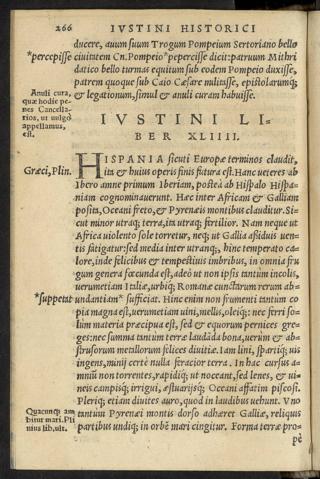 266 IVSTINI HISTORICI
ducere, auum suum Trogum Pompeium Sertoriano bello
*percepisse ciuitatem Cn. Pompeio *pepercisse dicit: patruum Mithri
datico bello turmas equitum sub eodem Pompeio duxisse,
patrem quoque sub Caio Cæsare militasse, epistolarumq́;
& legationum, simul & anuli curam habuisse.
Anuli cura,
quæ hodie pe-
nes Cancella-
rios, ut uulgo
appellamus,
est.
IVSTINI LI-
BER XLIIII.
HISPANIA sicuti Europæ terminos claudit,
Græci, Plin. ita & huius operis finis futura est. Hanc ueteres ab
Ibero amne primum Iberiam, postea ab Hispalo Hispa-
niam cognominauerunt. Hæc inter Africam & Galliam
posita, Oceani freto, & Pyrenæis montibus clauditur. Si-
cut minor utraq;́ terra, ita utraq;́ fertilior. Nam neque ut
Africa uiolento sole torretur, neq;́ ut Gallia assiduis uen-
tis fatigatur: sed media inter utranq;́, hinc temperato ca-
lore, inde felicibus & tempestiuis imbribus, in omnia fru
gum genera fœcunda est, adeò ut non ipsis tantùm incolis,
uerumetiam Italiæ, urbiq;́ Romanæ cunctarum rerum ab-
*suppetat undantiam* sufficiat. Hinc enim non frumenti tantùm co
pia magna est, uerumetiam uini, mellis, oleiq;́: nec ferri so-
lùm materia præcipua est, sed & equorum pernices gre-
ges: nec summa tantùm terræ laudãda bona, uerùm & ab-
strusorum metallorum felices diuitiæ. Iam lini, spartiq;́; uis
ingens, minij certè nulla feracior terra. In hac cursus a-
mniũ non torrentes, rapidiq;́; ut noceant, sed lenes, & ui-
neis campisq;́; irrigui, æstuarijsq;́; Oceani affatim piscosi.
Pleriq;́; etiam diuites auro, quod in laudibus uehunt. Vno
tantùm Pyrenæi montis dorso adhæret Galliæ, reliquis
partibus undiq;́; in orbē mari cingitur. Forma terræ pro-
Quacunq; am
bitur mari. Pli
nius lib, ult.
pè